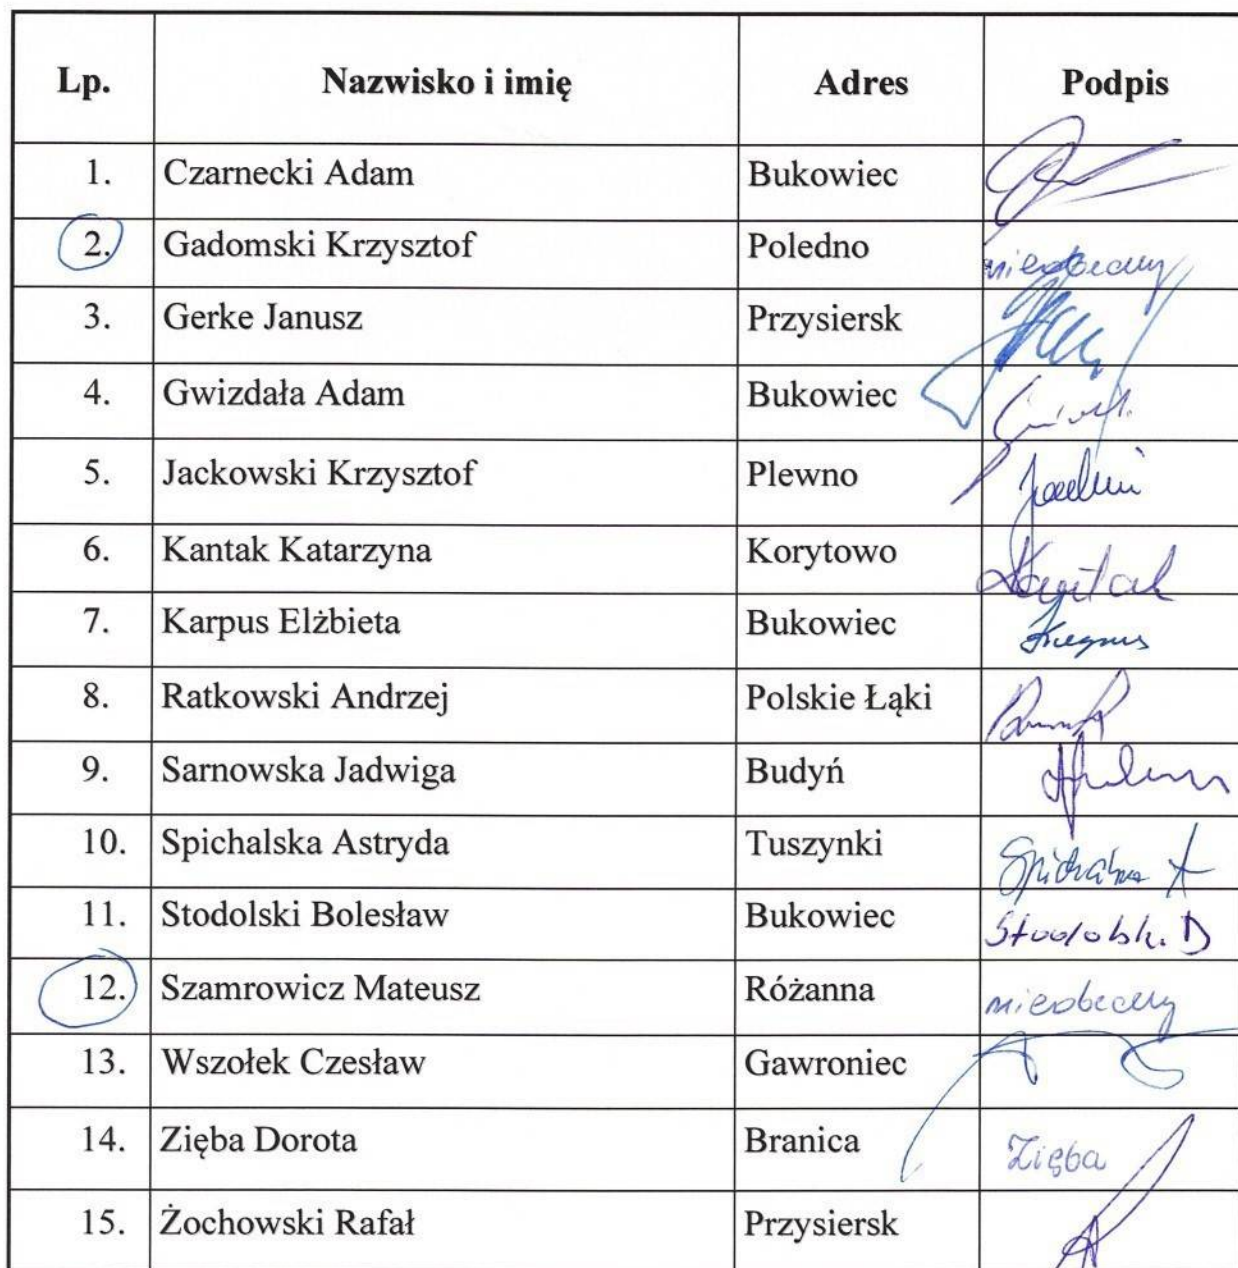 Lp. Nazwisko i imię Adres Podpis
1. Czarnecki Adam Bukowiec
2. Gadomski Krzysztof Poledno nieobecny
3. Gerke Janusz Przysiersk
4. Gwizdała Adam Bukowiec
5. Jackowski Krzysztof Plewno
6. Kantak Katarzyna Korytowo Kantak
7. Karpus Elżbieta Bukowiec Karpus
8. Ratkowski Andrzej Polskie Łąki
9. Sarnowska Jadwiga Budyń
10. Spichalska Astryda Tuszynki
11. Stodolski Bolesław Bukowiec
12. Szamrowicz Mateusz Różanna nieobecny
13. Wszołek Czesław Gawroniec
14. Zięba Dorota Branica Zięba
15. Żochowski Rafał Przysiersk